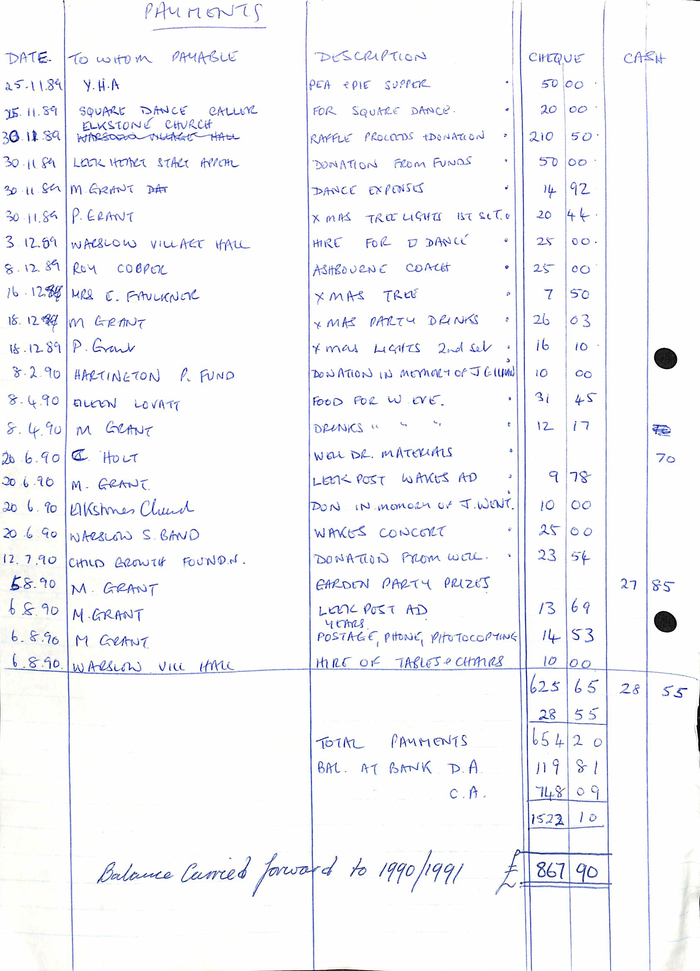 PAYMENTS
DATE. TO WHOM PAYABLE DESCRIPTION CHEQUE CASH
25.11.89 Y.H.A PEA & PIE SUPPER 50 00
25.11.89 SQUARE DANCE CALLER FOR SQUARE DANCE. 20 00
ELKSTONE CHURCH
30.11.89 WARSLOW VILLAGE HALL RAFFLE PROCEEDS + DONATION 210 50
30.11.89 LEEK HEART START APPEAL DONATION FROM FUNDS 50 00
30.11.89 M GRANT DANCE EXPENSES 14 92
30.11.89 P. GRANT XMAS TREE LIGHTS 1ST SET. 20 44
3 12.89 WARSLOW VILLAGE HALL HIRE FOR DANCE 25 00
8.12.89 ROY COOPER ASHBOURNE COACH 25 00
16.12.89 MRS E. FAULKNER XMAS TREE 7 50
18.12.89 M GRANT XMAS PARTY DRINKS 26 03
18.12.89 P. Grant Xmas LIGHTS 2nd Set 16 10
8.2.90 HARTINGTON P. FUND DONATION IN MEMORY OF J 10 00
8.4.90 EILEEN LOVATT FOOD FOR W EVE. 31 45
8.4.90 M GRANT DRINKS " " " 12 17
20 6.90 HOLT WELL DR. MATERIALS 70
20 6.90 M. GRANT LEEK POST WAKES AD 9 78
20 6.90 Elkstones Church DON IN MEMORY OF J. WENT. 10 00
20 6.90 WARSLOW S. BAND WAKES CONCERT 25 00
12.7.90 CHILD GROWTH FOUND.N. DONATION FROM WELL. 23 54
5.8.90 M. GRANT GARDEN PARTY PRIZES 27 85
6 8.90 M. GRANT LEEK POST AD 13 69
YEARS
6.8.90 M GRANT POSTAGE, PHONE, PHOTOCOPYING 14 53
6.8.90. WARSLOW VILL HALL HIRE OF TABLES & CHAIRS 10 00
625 65 28 55
28 55
TOTAL PAYMENTS 654 20
BAL. AT BANK D.A. 119 81
C.A. 748 09
1522 10
Balance Carried forward to 1990/1991 £ 867 90